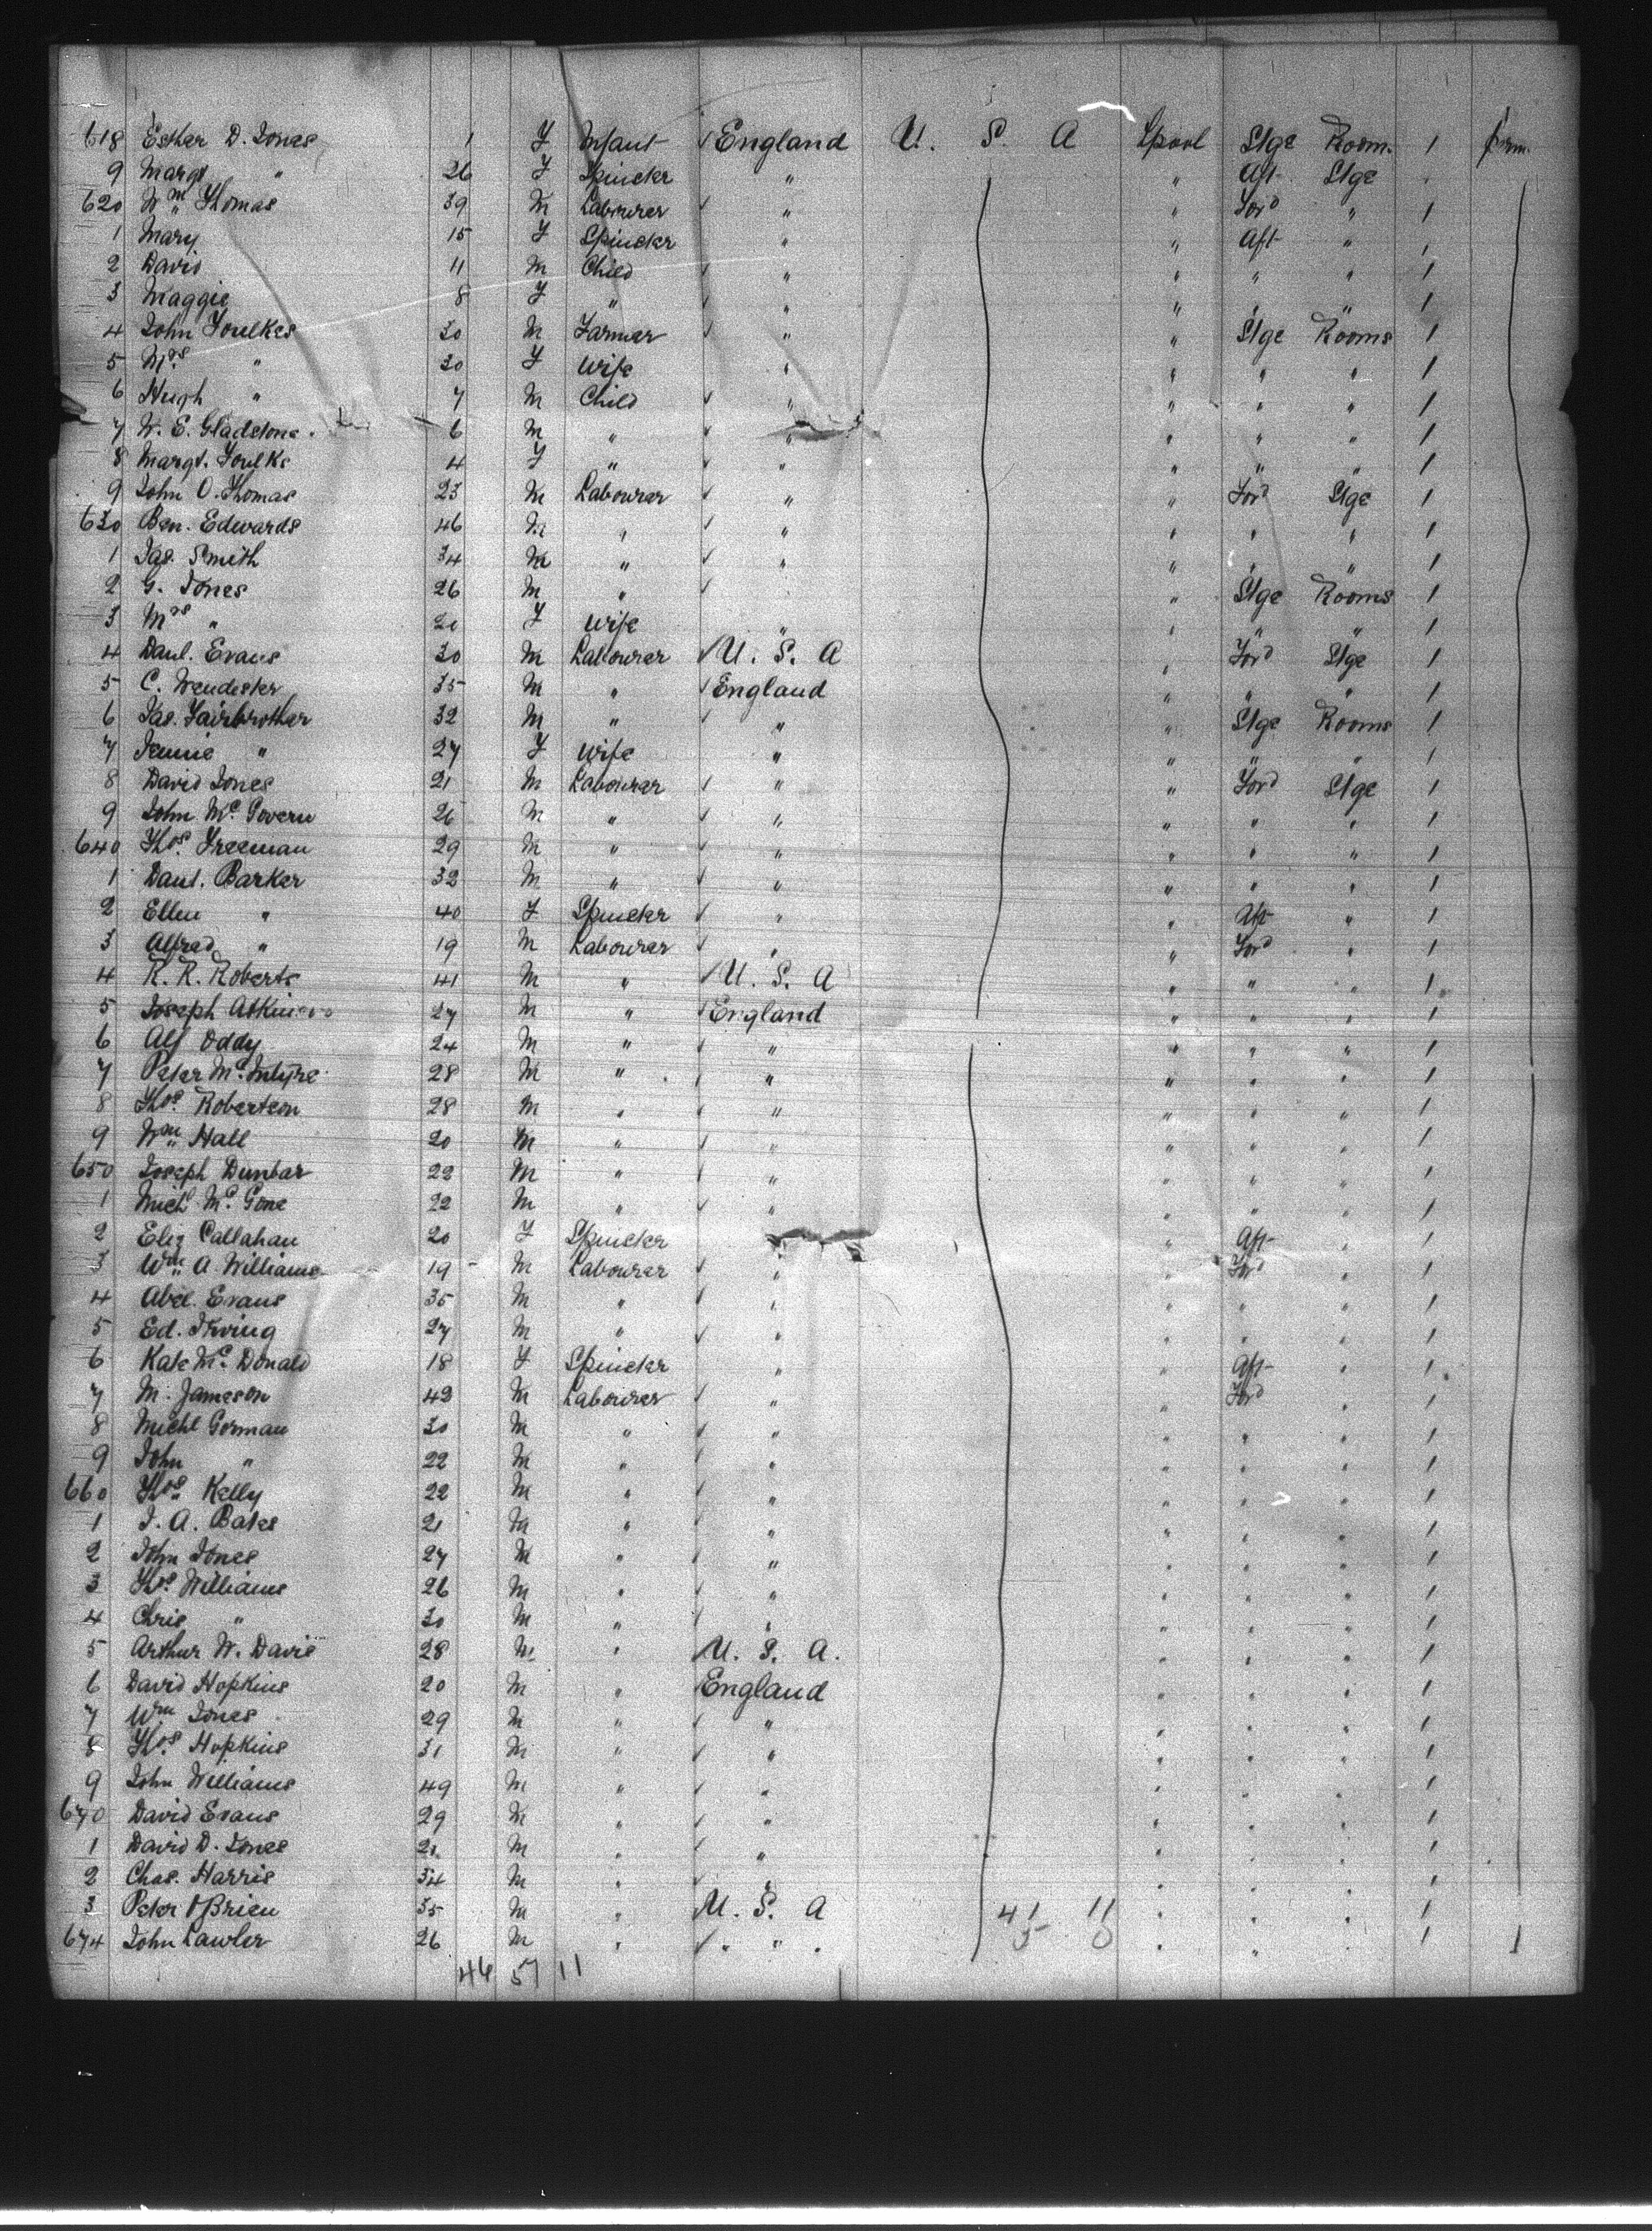 618 Esther D. Jones 1 F Infant England U. S. A Lpool Stge Rooms 1 prm.
9 Margt " 26 F Spinster " " Aft Stge "
620 Wm Thomas 39 M Labourer " " Ford " 1
1 Mary 15 F Spinster " " Aft " 1
2 David 11 M Child " " " " 1
3 Maggie 8 F " " " " " 1
4 John Foulkes 30 M Farmer " " Stge Rooms 1
5 Mrs " 30 F Wife " " " " 1
6 Hugh " 7 M Child " " " " 1
7 W. E. Gladstone 6 M " " " " " 1
8 Margt. Foulks 4 F " " " " " 1
9 John O. Thomas 23 M Labourer " " Ford Stge 1
630 Ben. Edwards 46 M " " " " " 1
1 Jas. Smith 34 M " " " " " 1
2 G. Jones 26 M " " Stge Rooms 1
3 Mrs " 20 F Wife " " " " 1
4 Danl. Evans 30 M Labourer U. S. A " Ford Stge 1
5 C. 35 M " England " " " 1
6 Jas. Fairbrother 32 M " " " Stge Rooms 1
7 Jennie " 27 F Wife " " " " 1
8 David Jones 21 M Labourer " " Ford Stge 1
9 John Mc Govern 26 M " " " " " 1
640 Thos. Freeman 29 M " " " " " 1
1 Danl. Barker 32 M " " " " " 1
2 Ellen " 40 F Spinster " " Aft " 1
3 Alfred " 19 M Labourer " " Ford " 1
4 R. R. Roberts 41 M " U. S. A " " " 1
5 Joseph 27 M " England " " " 1
6 Alf Oddy 24 M " " " " " 1
7 Peter Mc. Intyre 28 M " " " " " 1
8 Thos. Robertson 28 M " " " " " 1
9 Wm Hall 20 M " " " " " 1
650 Joseph Dunbar 22 M " " " " " 1
1 Michl Mc. Gone 22 M " " " " " 1
2 Eliz Callahan 20 F Spinster " " Aft " 1
3 Wm A Williams 19 M Labourer " " Ford " 1
4 Abel. Evans 35 M " " " " " 1
5 Ed. Irving 27 M " " " " " 1
6 Kate Mc. Donald 18 F Spinster " " Aft " 1
7 M. Jameson 42 M Labourer " " Ford " 1
8 Michl Gorman 30 M " " " " " 1
9 John " 22 M " " " " " 1
660 Thos Kelly 22 M " " " " " 1
1 J. A. Bates 21 M " " " " " 1
2 John Jones 27 M " " " " " 1
3 Thos. Williams 26 M " " " " " 1
4 Chris " 30 M " " " " " 1
5 Arthur W. Davis 28 M " U. S. A. " " " 1
6 David Hopkins 20 M " England " " " 1
7 Wm Jones 29 M " " " " " 1
8 Thos Hopkins 31 M " " " " " 1
9 John Williams 49 M " " " " " 1
670 David Evans 29 M " " " " " 1
1 David D. Jones 21 M " " " " " 1
2 Chas. Harris 34 M " " " " " 1
3 Peter O'Brien 35 M " U. S. A 41 11 " " " 1
674 John Lawler 26 M " " " " 5 0 " " " 1 1
46 57 11